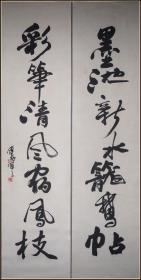 墨池新水籠鵞帖
彩筆清風宿鳳枝